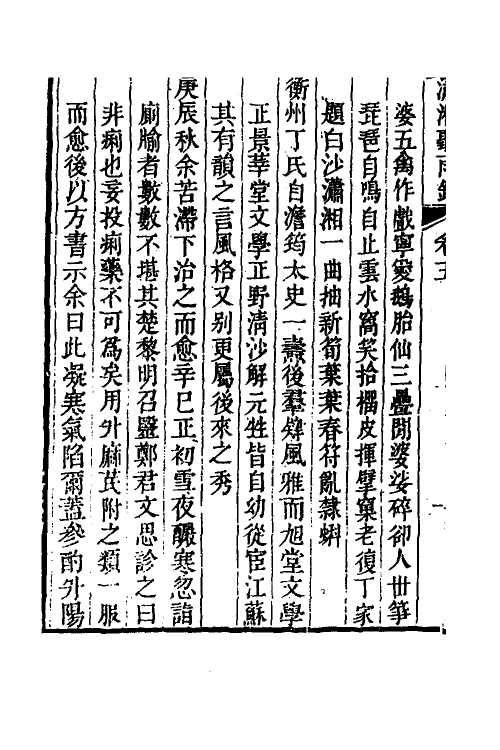 瀟湘聽雨錄 卷五
婆五禽作戲寧爰鵝胎仙三疊閒婆娑碎卻人世箏
琵琶自鳴自止雲水窩笑拾櫊皮揮擘窠老復丁家
題白沙瀟湘一曲抽新筍葉葉春符亂隸蝌
衡州丁氏自澹筠太史一燾後羣雖風雅而旭堂文學
正景莘堂文學正野清沙解元甡皆自幼從宦江蘇
其有韻之言風格又别更屬後來之秀
庚辰秋余苦滯下治之而愈辛巳正初雪夜釅寒忽詣
廁牏者數數不堪其楚黎明召毉鄭君文思診之曰
非痢也妄投痢藥不可爲矣用升麻芪附之類一服
而愈後以方書示余曰此凝寒氣陷爾蓋參酌升陽